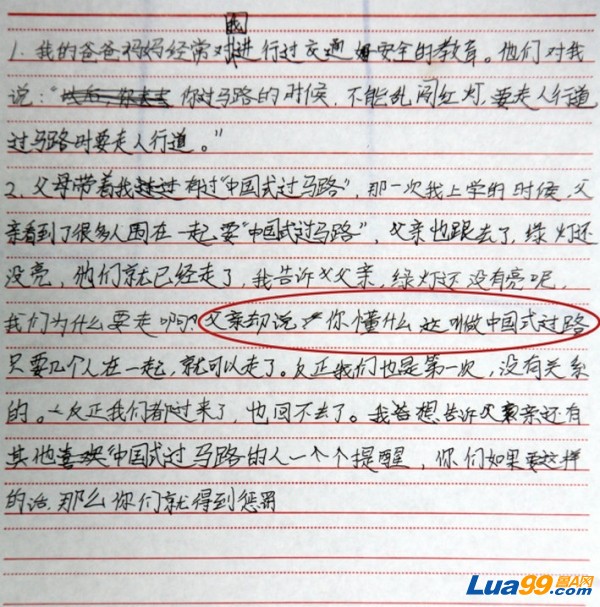 1. 我的爸爸妈妈经常对我进行过交通安全的教育。他们对我
说："你过马路的时候，不能乱闯红灯，要走人行道
过马路时要走人行道。"
2、父母带着我有过"中国式过马路"，那一次我上学的时候，父
亲看到了很多人围在一起要"中国式过马路"，父亲也跟去了，绿灯还
没亮，他们就已经走了，我告诉父亲，绿灯还没有亮呢，
我们为什么要走啊？父亲却说：你懂什么这叫做中国式过路
只要几个人在一起，就可以走了。反正我们也是第一次，没有关系
的。反正我们都过来了，也回不去了。我想告诉父亲还有
其他"中国式过马路的人一个个提醒，你们如果要这样
的话，那么你们就得到惩罚
Lua99.com 撸A网